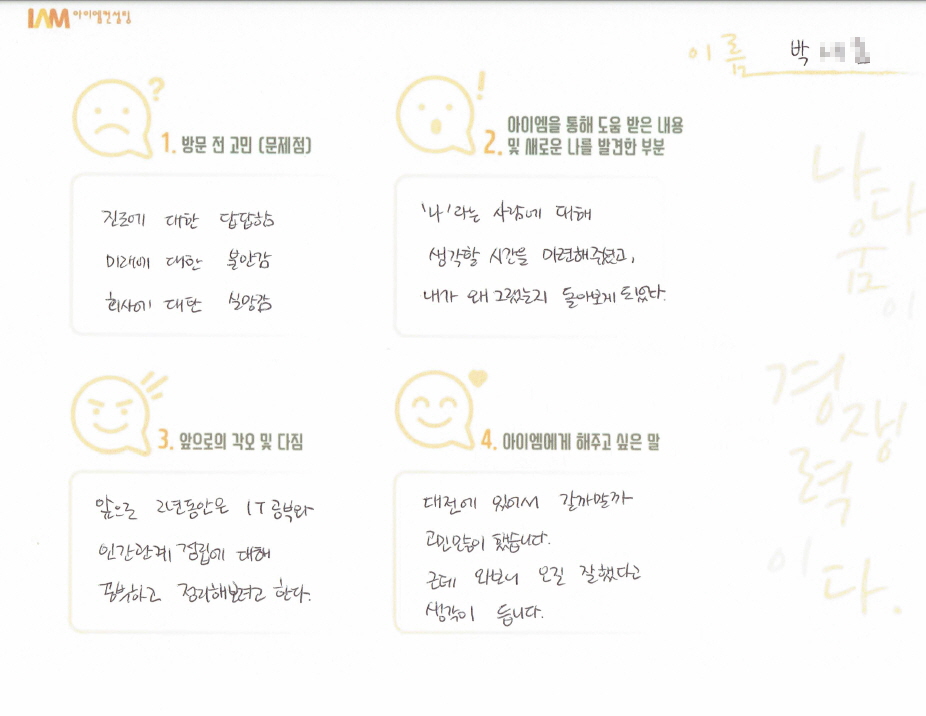 IAM 아이엠컨설팅
이름 박
1. 방문 전 고민 (문제점)
진로에 대한 답답함
미래에 대한 불안감
회사에 대한 실망감
2. 아이엠을 통해 도움 받은 내용
및 새로운 나를 발견한 부분
'나'라는 사람에 대해
생각할 시간을 마련해주었고,
내가 왜 그랬는지 돌아보게 되었다.
3. 앞으로의 각오 및 다짐
앞으로 2년동안은 IT 공부와
인간관계 정립에 대해
공부하고 정리해보려고 한다.
4. 아이엠에게 해주고 싶은 말
대전에 있어서 갈까말까
고민많이 했습니다.
근데 와보니 오길 잘했다고
생각이 듭니다.
나다움이
경쟁력이다.